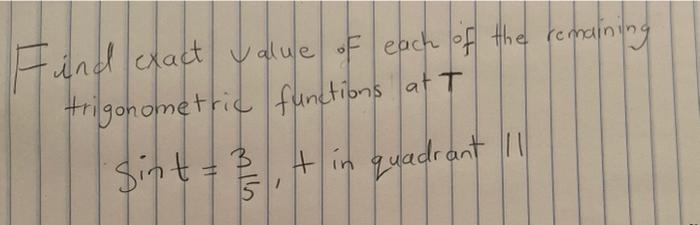 Find exact value of each of the remaining
trigonometric functions at T
sin t = 3/5, t in quadrant II